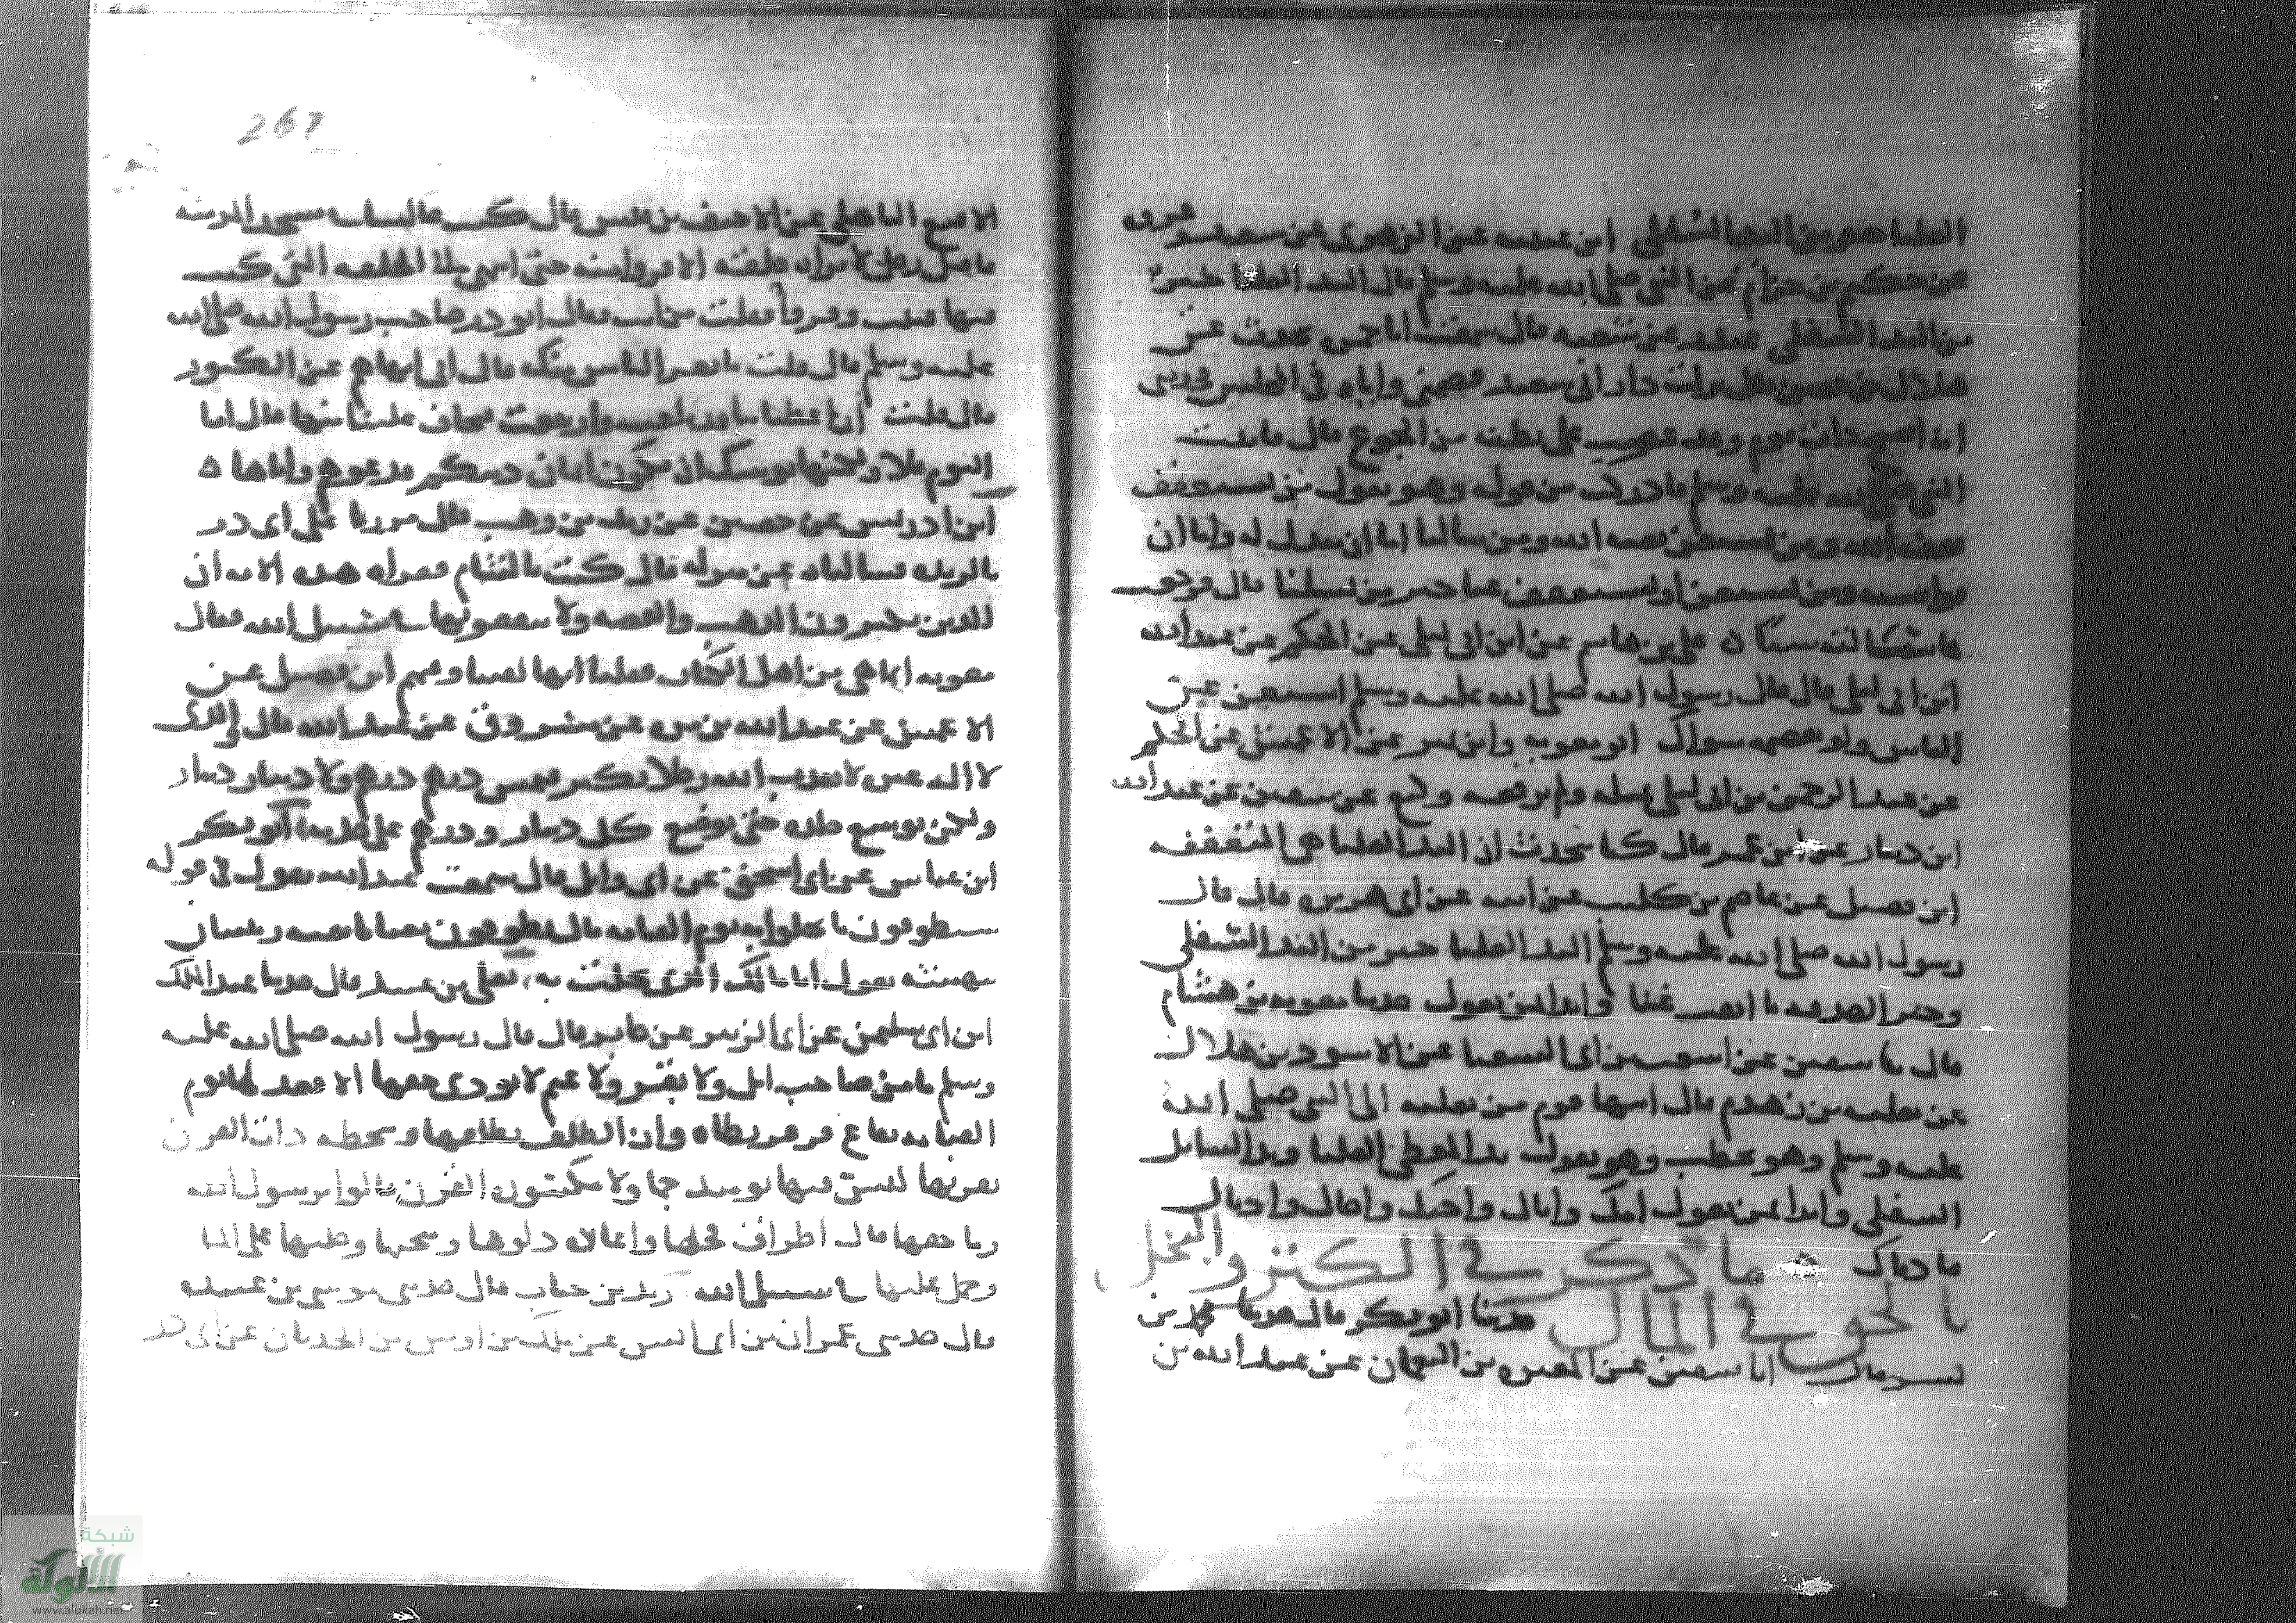 العليا خير من اليد السفلى ابن عيينه عن الزهري عن سعيد وعروه
عن حكيم بن حزام عن النبي صلى الله عليه وسلم قال اليد العليا خير
من اليد السفلى غندر عن شعبه قال سمعت ابا حمزه يحدث عن
هلال بن حصن قال نزلت دار ابي سعيد فضمني واياه في المجلس فحدثني
انه اصبح ذات يوم وقد عصب على بطنه من الجوع قال فاتيت
النبي صلى الله عليه وسلم فادركت من قوله وهو يقول من يستعفف
يعفه الله ومن يستغن يغنه الله ومن سالنا اما ان نبذل له واما ان
نواسيه ومن يستغن او يستعفف عنا خير من يسلنا قال فرجعت
فما سالته شيئا ه علي بن هاشم عن ابن ابي ليلى عن الحكم عن عبد الله
ابن ابي ليلى قال قال رسول الله صلى الله عليه وسلم استغن عن
الناس ولو بقصمه سواك ابو معويه وابن نمير عن الاعمش عن الحكم
عن عبد الرحمن بن ابي ليلى مثله ولم يرفعه وكيع عن سفين عن عبد الله
ابن دينار عن ابن عمر قال كنا نتحدث ان اليد العليا هي المتعففه
ابن فضيل عن عاصم بن كليب عن ابيه عن ابي هريره قال قال
رسول الله صلى الله عليه وسلم اليد العليا خير من اليد السفلى
وخير الصدقه ما ابقت غنا وابدا بمن تعول حدثنا معويه بن هشام
قال نا سفين عن اشعث بن ابي الشعثا عن الاسود بن هلال
عن ثعلبه بن زهدم قال انتهى قوم من ثعلبه الى النبي صلى الله
عليه وسلم وهو يخطب وهو يقول يد المعطي العليا ويد السائل
السفلى وابدا بمن تعول امك واباك واختك واخاك وادناك
فادناك ما ذكر في الكنز والبخل
بالحق في المال حدثنا ابو بكر قال حدثنا محمد بن
بشر قال انا سفين عن المغيره بن النعمان عن عبد الله بن
267
الاقنع الباهلي عن الاحنف بن قيس قال كنت جالسا في مسجد المدينه
فاقبل رجل لا تراه حلقه الا فروا منه حتى انتهى الى الحلقه التي كنت
فيها فثبت وفروا فقلت من انت فقال ابو ذر صاحب رسول الله صلى الله
عليه وسلم قال قلت ما يفر الناس منك قال اني انهاهم عن الكنوز
قال قلت ان اعطياتنا قد بلغت وارتفعت فتخاف علينا منها قال اما
اليوم فلا ولكنها يوشك ان تكون اثمان دينكم فدعوهم واياها ه
ابن ادريس عن حصين عن زيد بن وهب قال مررنا على ابي ذر
بالربذه فسالناه عن منزله قال كنت بالشام فقرات هذه الايه ان
الذين يكنزون الذهب والفضه ولا ينفقونها في سبيل الله فقال
معويه انما هي من اهل الكتاب فقلنا انها لفينا وفيهم ابن فضيل عن
الاعمش عن عبد الله بن مره عن مسروق عن عبد الله قال والذي
لا اله غيره لا يعذب الله رجلا يكنز فيمس درهم درهم ولا دينار دينار
ولكن يوسع جلده حتى يوضع كل دينار ودرهم على جلده ابو بكر
ابن عياش عن ابي اسحق عن ابي وايل قال سمعت عبد الله يقول في قوله
سيطوقون ما بخلوا به يوم القيامه قال يطوقون ثعبانا بفيه زبيبتان
ينهشه يقول انا مالك الذي بخلت به يعلى بن عبيد قال حدثنا عبد الملك
ابن ابي سليمن عن ابي الزبير عن جابر قال قال رسول الله صلى الله عليه
وسلم ما من صاحب ابل ولا بقر ولا غنم لا يودي حقها الا قعد لها يوم
القيامه بقاع قرقر تطاه ذات الظلف بظلفها وتنطحه ذات القرن
بقرنها ليس فيها يومئذ جما ولا مكسوره القرن قالوا يرسول الله
وما حقها قال اطراق فحلها واعاره دلوها ومنحها وحلبها على الما
وحمل عليها في سبيل الله زيد بن حباب قال حدثني موسى بن عبيده
قال حدثني عمران بن ابي انس عن ملك بن اوس بن الحدثان عن ابي ذر